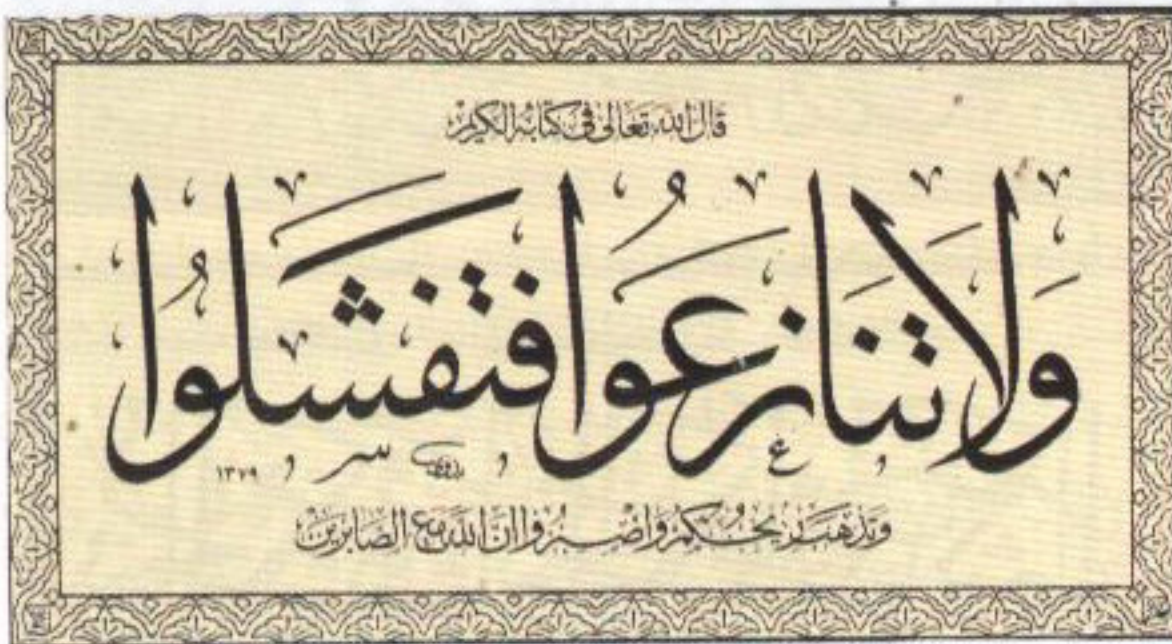 قال الله تعالى في كتابه الكريم
ولا تنازعوا فتفشلوا
بدوي ١٣٧٩
وتذهب ريحكم واصبروا ان الله مع الصابرين